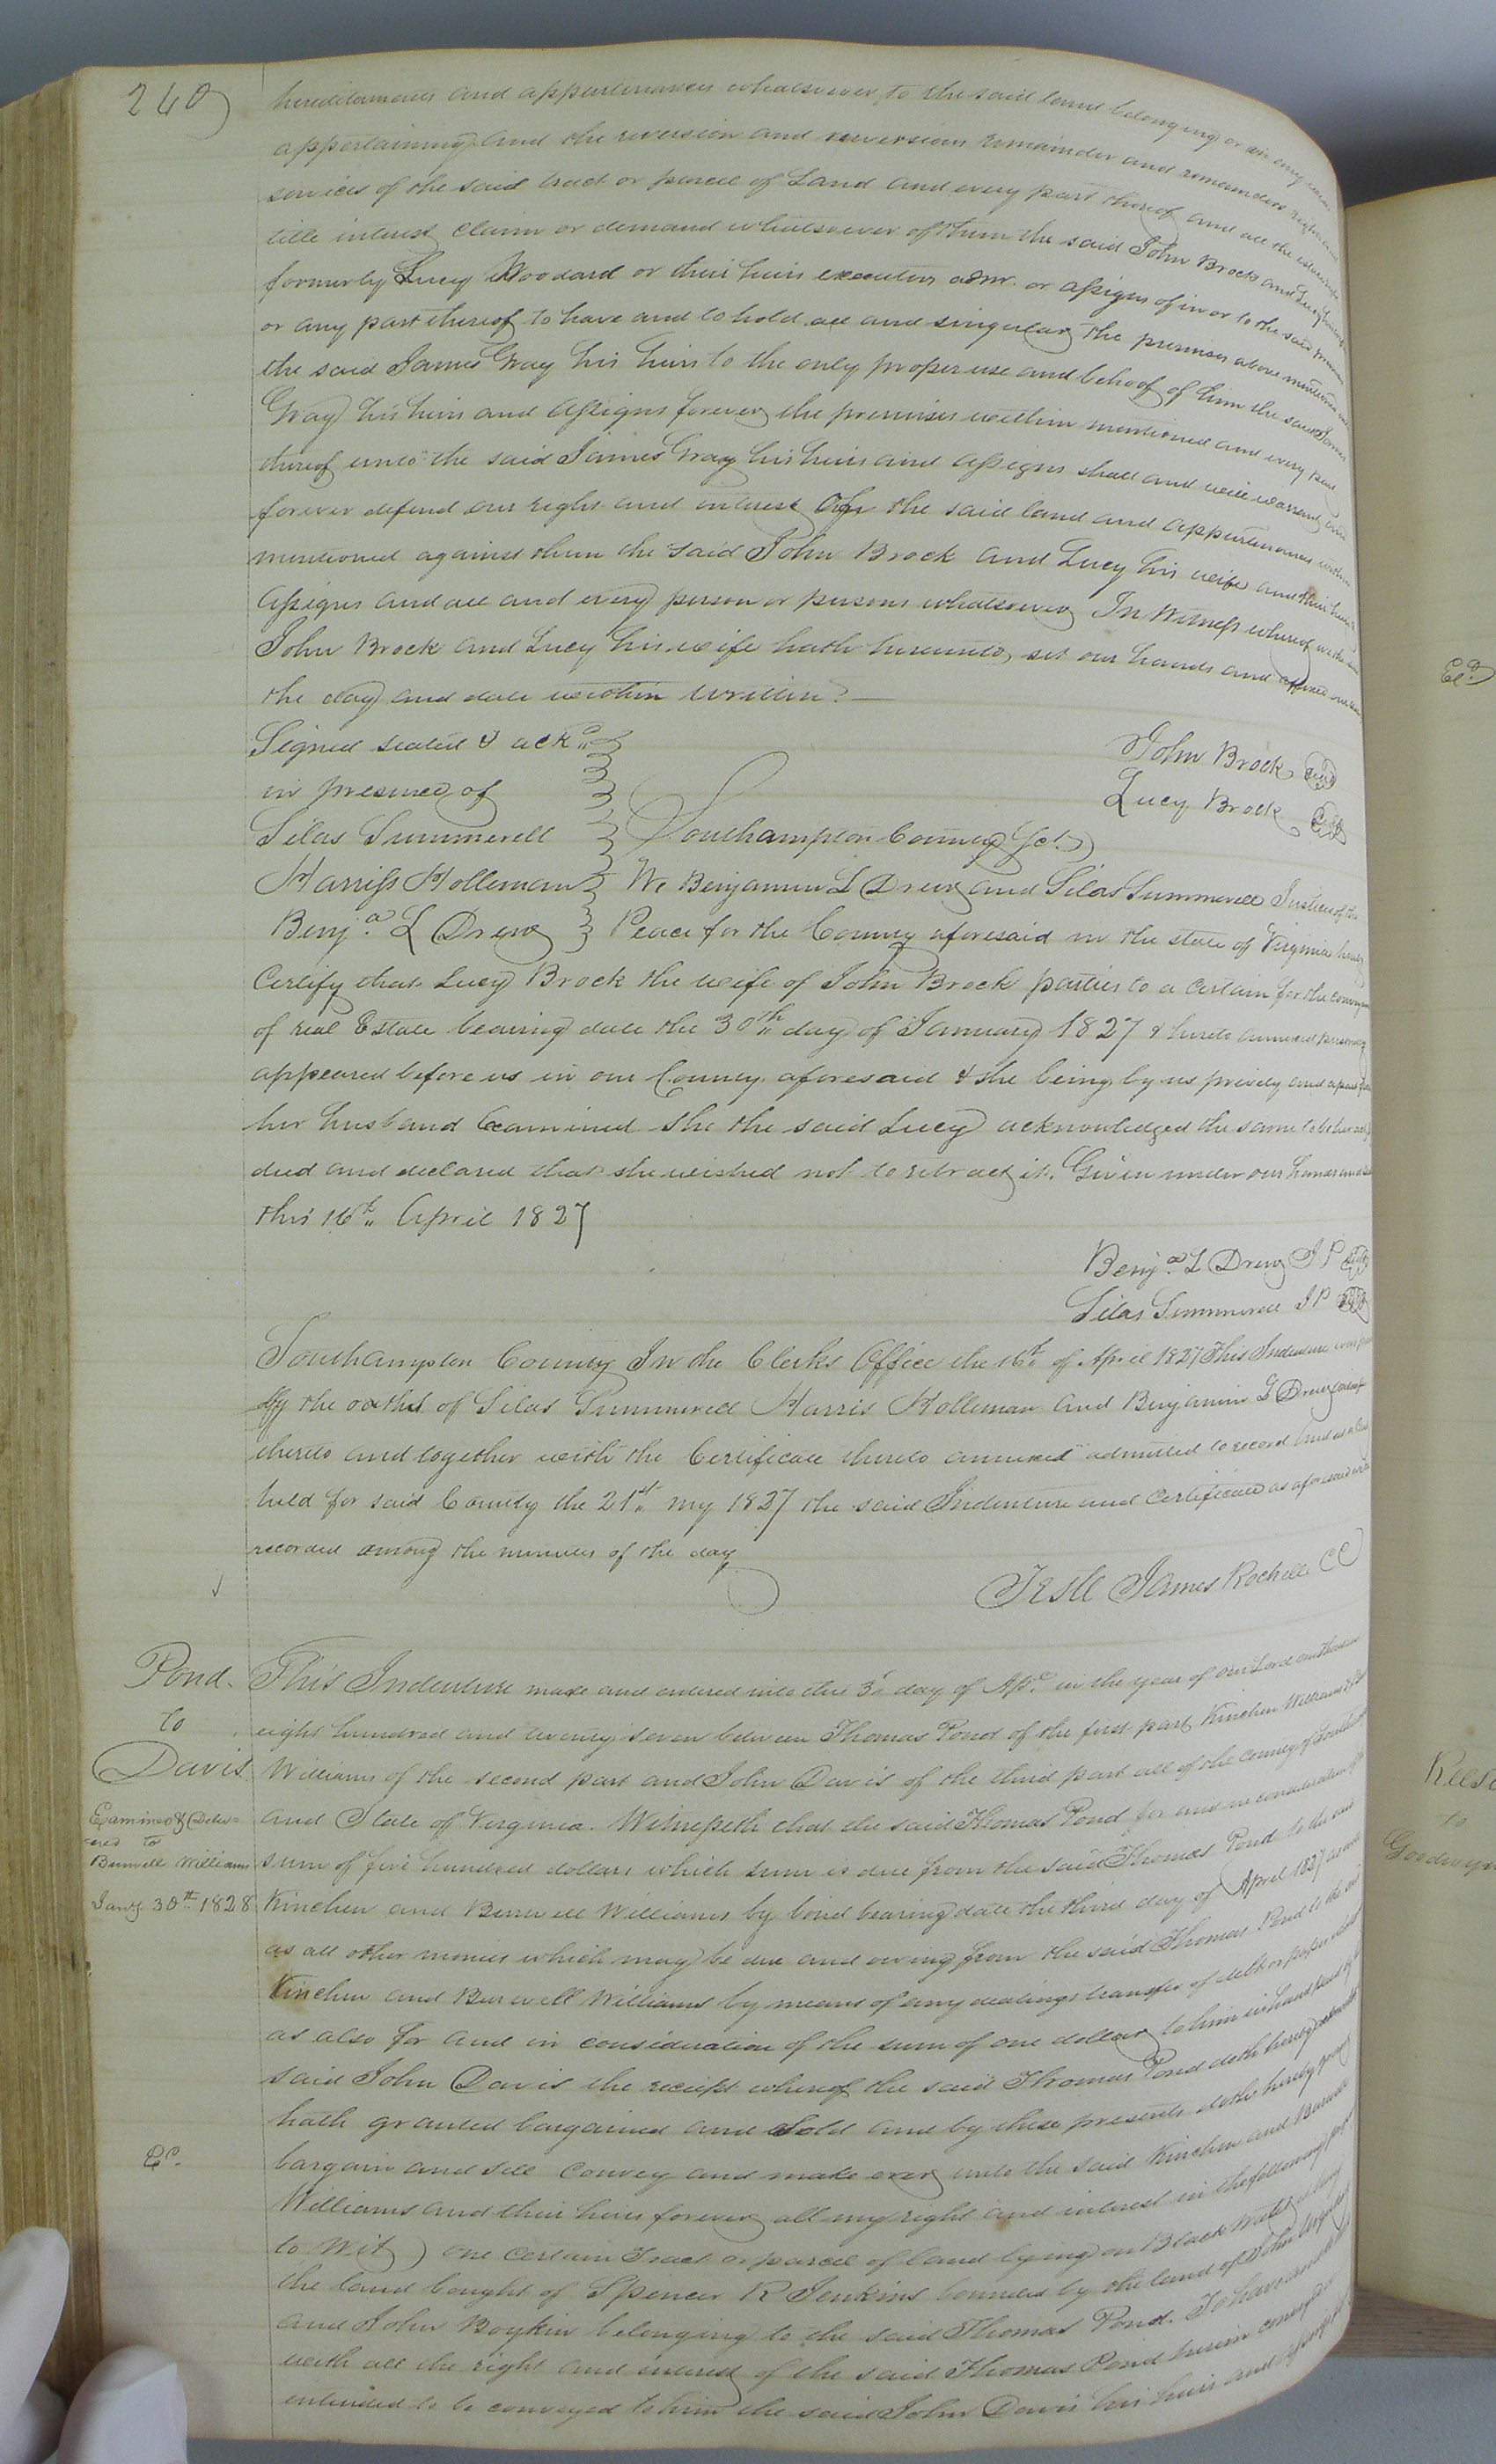 240
hereditaments and appurtenances whatsoever to the said land belonging or in any
appertaining and the reversion and reversions remainder and remainders
services of the said tract or parcel of Land and every part thereof and all the
title interest claim or demand whatsoever of them the said John Brock and Lucy
formerly Lucy Woodard or their heirs executors admr. or assigns of in or to the said
or any part thereof to have and to hold all and singular the premises above mentioned
the said James Gray his heirs to the only proper use and behoof of him the said James
Gray his heirs and assigns forever the premises within mentioned and every part
thereof unto the said James Gray his heirs and assigns shall and will warrant and
forever defend our right and interest of the said land and appurtenances within
mentioned against them the said John Brock and Lucy his wife and their heirs
assigns and all and every person or persons whatsoever In Witness whereof we the
John Brock and Lucy his wife hath hereunto set our hands and affixed our
the day and date within written.
Signed sealed & ackd
in presence of
Silas Summerell
Harriss Holleman
Benja L Drew
John Brock seal
Lucy Brock seal
Southampton County Sct.
We Benjamin L Drew and Silas Summerell Justices of the
Peace for the County aforesaid in the state of Virginia hereby
Certify that Lucy Brock the wife of John Brock parties to a certain for the
of real Estate bearing date the 30th day of January 1827 & hereto annexed
appeared before us in our County aforesaid & she being by us privily and apart
her husband Examined she the said Lucy acknowledged the same to be her
deed and declared that she wished not to retract it. Given under our hands and
this 16th April 1827
Benja L Drew J P seal
Silas Summerell J P seal
Southampton County In the Clerks Office the 16th of April 1827 This Indenture was
By the oaths of Silas Summerell Harris Holleman and Benjamin L Drew
thereto and together with the Certificate thereto annexed admitted to record And at a
held for said County the 21st my 1827 the said Indenture and certificate as aforesaid
recorded among the minutes of the day
Teste James Rochelle CC
Pond.
to
Davis
Examined & Deliv=
ered to
Burwell Williams
Jany 30th 1828
This Indenture made and entered into this 3d day of Apl in the year of our Lord one thousand
eight hundred and twenty seven between Thomas Pond of the first part Kinchen Williams
Williams of the second part and John Davis of the third part all of the county of
and State of Virginia. Witnesseth that the said Thomas Pond for and in consideration of
sum of five hundred dollars which sum is due from the said Thomas Pond to the said
Kinchen and Burwell Williams by bond bearing date the third day of April 1827 as well
as all other monies which may be due and owing from the said Thomas Pond to the said
Kinchen and Burwell Williams by means of any dealings transfer of debt or paper
as also for and in consideration of the sum of one dollar to him in hand paid
said John Davis the receipt whereof the said Thomas Pond doth hereby
hath granted bargained and sold and by these presents doth hereby grant
Ed.
bargain and sell convey and make over unto the said Kinchen and Burwell
Williams and their heirs forever all my right and interest in the following
to Wit) one certain Tract or parcel of land lying on Black Water
the land bought of Spencer R Jenkins bounded by the land of John
and John Boykin belonging to the said Thomas Pond. To have and
with all the right and interest of the said Thomas Pond herein
intended to be conveyed to him the said John Davis his heirs and
Ed
Reese
to
Goodwyn